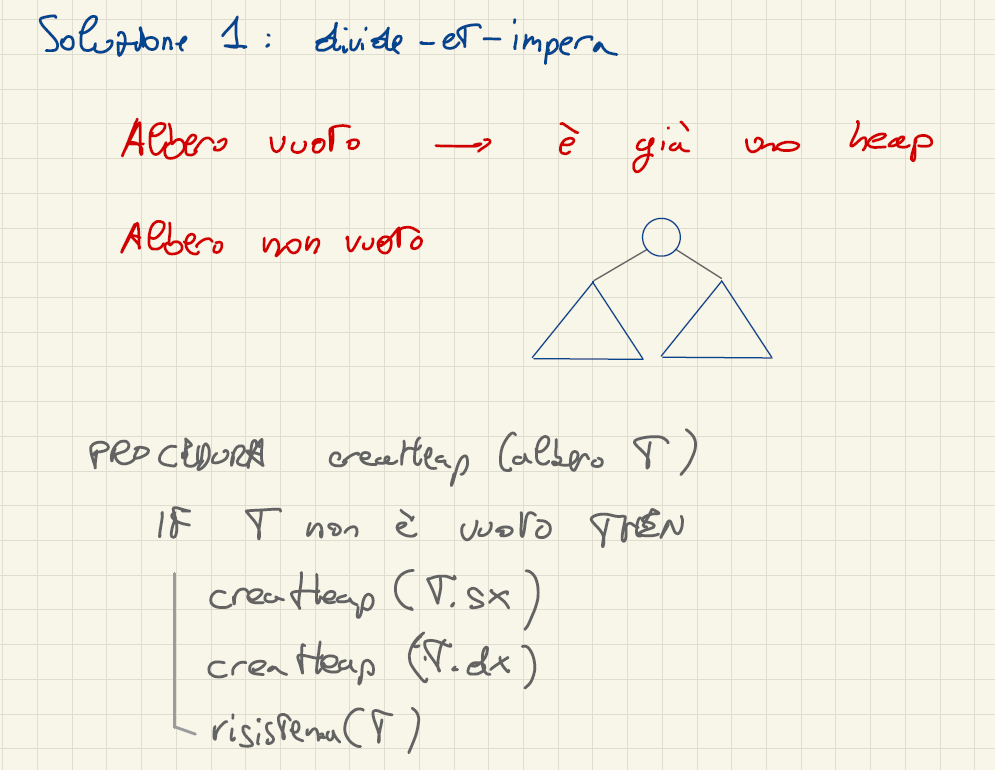 Soluzione 1: divide-et-impera
Albero vuoto → è già uno heap
Albero non vuoto
PROCEDURA creaHeap (albero T)
IF T non è vuoto THEN
creaHeap (T.sx)
creaHeap (T.dx)
risistema (T)